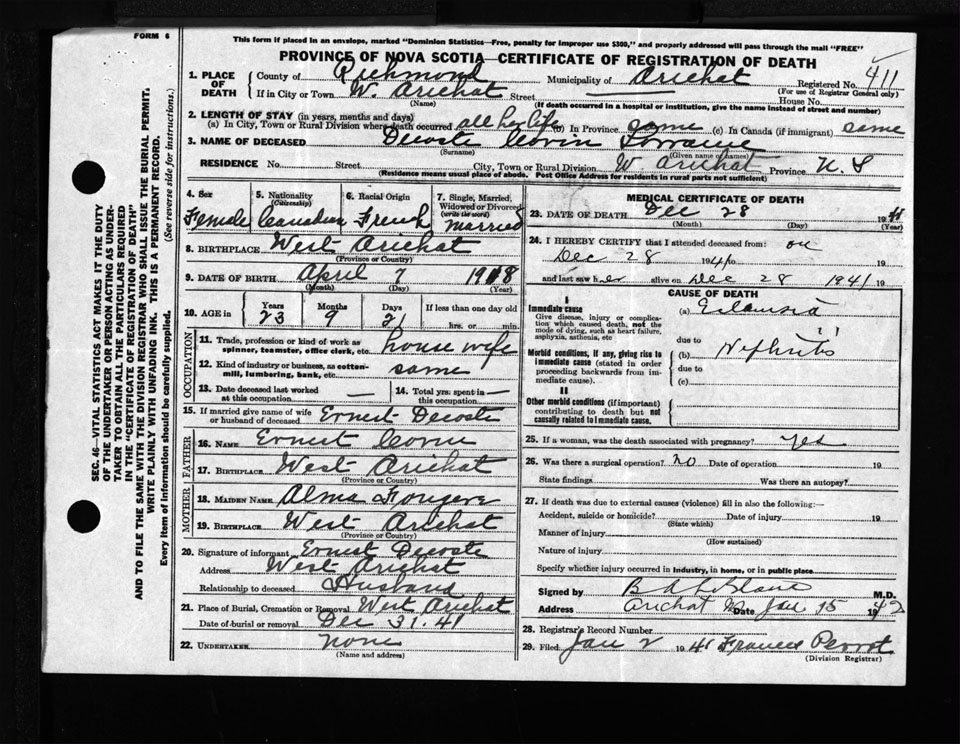 FORM 6
This form if placed in an envelope, marked "Dominion Statistics—Free, penalty for improper use $300," and properly addressed will pass through the mail "FREE"
PROVINCE OF NOVA SCOTIA—CERTIFICATE OF REGISTRATION OF DEATH
SEC. 46—VITAL STATISTICS ACT MAKES IT THE DUTY
OF THE UNDERTAKER OR PERSON ACTING AS UNDER-
TAKER TO OBTAIN ALL THE PARTICULARS REQUIRED
IN THE "CERTIFICATE OF REGISTRATION OF DEATH"
AND TO FILE THE SAME WITH THE DIVISION REGISTRAR WHO SHALL ISSUE THE BURIAL PERMIT.
WRITE PLAINLY WITH UNFADING INK. THIS IS A PERMANENT RECORD.
Every item of information should be carefully supplied. (See reverse side for instructions.)
1. PLACE OF DEATH
County of Richmond Municipality of Arichat Registered No. 411
(For use of Registrar General only)
If in City or Town W. Arichat Street House No.
(Name) (If death occurred in a hospital or institution, give the name instead of street and number)
2. LENGTH OF STAY (in years, months and days)
(a) In City, Town or Rural Division where death occurred all her life (b) In Province same (c) In Canada (if immigrant) same
3. NAME OF DECEASED Decoste Lorraine
(Surname) (Given name or names)
RESIDENCE No. Street City, Town or Rural Division W. Arichat Province N.S
(Residence means usual place of abode. Post Office Address for residents in rural parts not sufficient)
4. Sex Female
5. Nationality (Citizenship) Canadian
6. Racial Origin French
7. Single, Married, Widowed or Divorced (write the word) Married
8. BIRTHPLACE West Arichat
(Province or Country)
9. DATE OF BIRTH April 7 1918
(Month) (Day) (Year)
10. AGE in Years 23 Months 9 Days 21 If less than one day old hrs. or min.
OCCUPATION
11. Trade, profession or kind of work as spinner, teamster, office clerk, etc. house wife
12. Kind of industry or business, as cotton-mill, lumbering, bank, etc. same
13. Date deceased last worked at this occupation —
14. Total yrs. spent in this occupation —
15. If married give name of wife or husband of deceased Ernest Decoste
FATHER
16. NAME Ernest
17. BIRTHPLACE West Arichat
(Province or Country)
MOTHER
18. MAIDEN NAME Alma Fougere
19. BIRTHPLACE West Arichat
(Province or Country)
20. Signature of informant Ernest Decoste
Address West Arichat
Relationship to deceased Husband
21. Place of Burial, Cremation or Removal West Arichat
Date of burial or removal Dec 31. 41
22. UNDERTAKER none
(Name and address)
MEDICAL CERTIFICATE OF DEATH
23. DATE OF DEATH Dec 28 1941
(Month) (Day) (Year)
24. I HEREBY CERTIFY that I attended deceased from: on
Dec 28 1941 to 19
and last saw her alive on Dec 28 1941 19
CAUSE OF DEATH
I
Immediate cause
Give disease, injury or complication which caused death, not the mode of dying, such as heart failure, asphyxia, asthenia, etc
(a)
due to
Morbid conditions, if any, giving rise to immediate cause (stated in order proceeding backwards from immediate cause).
(b) Nephritis
due to
(c)
II
Other morbid conditions (if important) contributing to death but not causally related to immediate cause.
25. If a woman, was the death associated with pregnancy? yes
26. Was there a surgical operation? no Date of operation 19
State findings Was there an autopsy?
27. If death was due to external causes (violence) fill in also the following:—
Accident, suicide or homicide? Date of injury 19
(State which)
Manner of injury
(How sustained)
Nature of injury
Specify whether injury occurred in industry, in home, or in public place
Signed by B A LeBlanc M.D.
Address Arichat Date Jan 15 1942
28. Registrar's Record Number
29. Filed Jan 2 19 Frances Perrot
(Division Registrar)